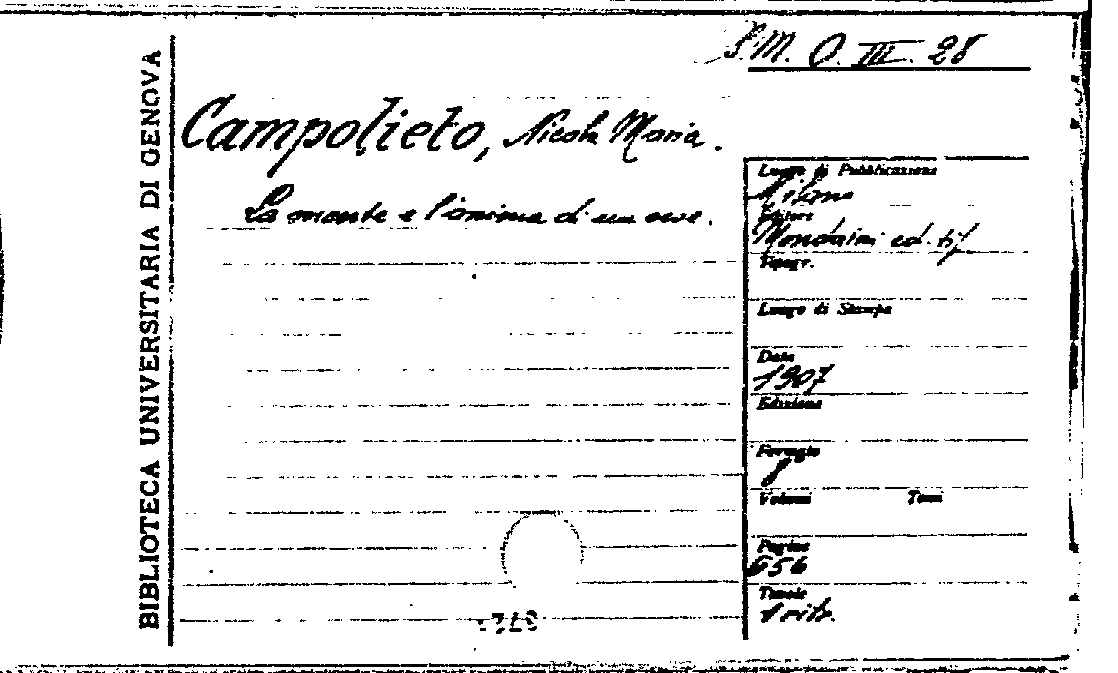 BIBLIOTECA UNIVERSITARIA DI GENOVA
S.M. O. III. 28
Campolieto, Nicola Maria.
La mente e l'anima di un eroe.
Luogo di Pubblicazione
Milano
Editore
Mondaini ed. tip
Tipogr.
Luogo di Stampa
Data
1907
Edizione
Formato
8
Volumi Tomi
Pagine
656
Tavole
1 ritr.